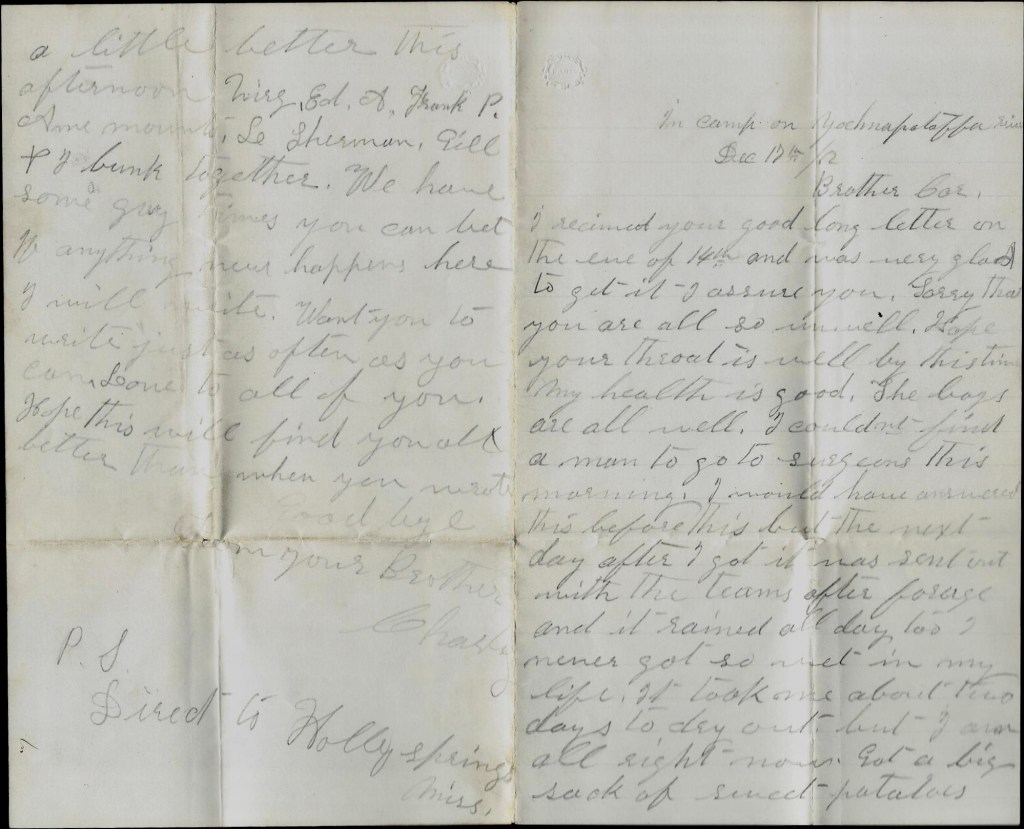 In camp on Yochnapataffa River
Dec 17th /2
Brother Cor.
I recieved your good long letter on
the eve of 14th and was very glad
to get it I assure you. Sorry that
you are all so unwell. Hope
your throat is well by this time
My health is good. The boys
are all well. I couldnt find
a man to go to surgeons this
morning. I would have answered
this before this but the next
day after I got it was sent out
with the teams after forage
and it rained all day too I
never got so wet in my
life. It took me about two
days to dry out. but I am
all right now. Got a big
sack of sweet potatoes
a little better this
afternoon Ed. A, Frank P.
Le Sherman, Gill
& I bunk together. We have
some gay times you can bet
If anything new happens here
I will write. Want you to
write just as often as you
can. Love to all of you.
Hope this will find you all
better than when you wrote
Good bye
From your Brother
Charley
P. S.
Direct to Holly springs
Miss.